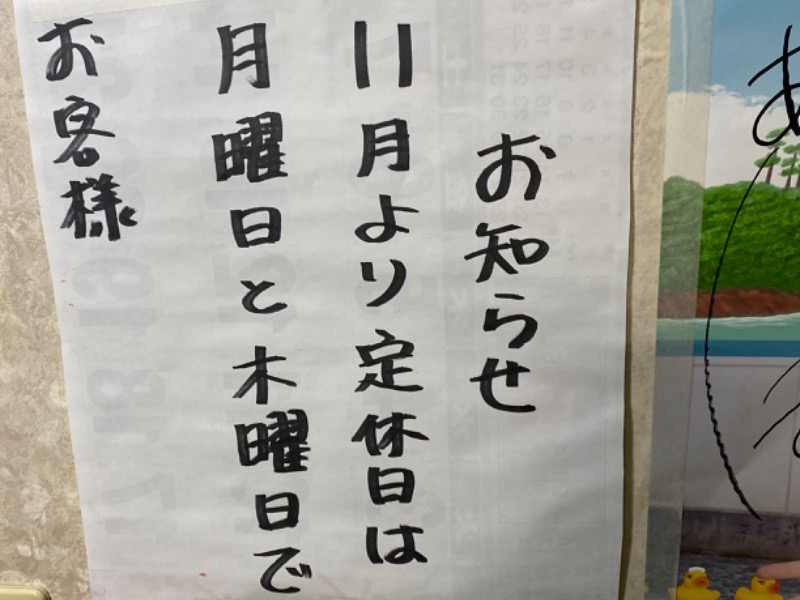 お知らせ
11月より定休日は
月曜日と木曜日で
お客様